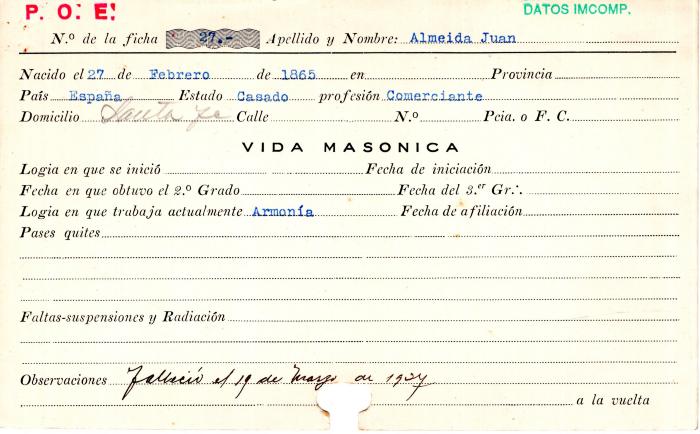 P. O. E.
DATOS IMCOMP.
N.º de la ficha 27.- Apellido y Nombre: Almeida Juan
Nacido el 27 de Febrero de 1865 en Provincia
País España Estado Casado profesión Comerciante
Domicilio Santa Fe Calle N.º Pcia. o F. C.
VIDA MASONICA
Logia en que se inició Fecha de iniciación
Fecha en que obtuvo el 2.º Grado Fecha del 3.er Gr∴
Logia en que trabaja actualmente Armonía Fecha de afiliación
Pases quites
Faltas-suspensiones y Radiación
Observaciones Falleció el 19 de Marzo de 1927
a la vuelta